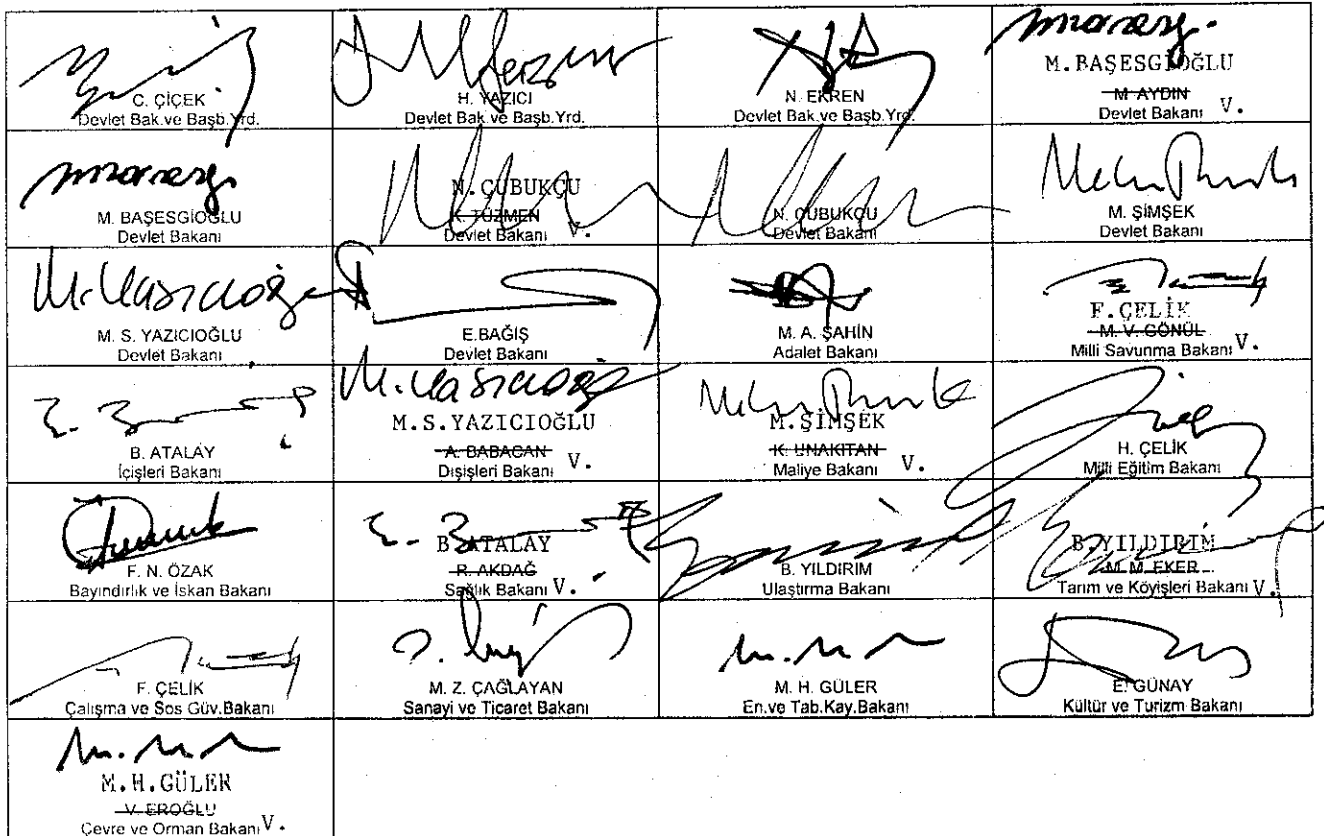 C. ÇİÇEK
Devlet Bak.ve Başb.Yrd.
H. YAZICI
Devlet Bak.ve Başb.Yrd.
N. EKREN
Devlet Bak.ve Başb.Yrd.
M.BAŞESGİOĞLU
M AYDIN
Devlet Bakanı V.
M. BAŞESGİOĞLU
Devlet Bakanı
N. ÇUBUKÇU
K. TÜZMEN
Devlet Bakanı V.
N. ÇUBUKÇU
Devlet Bakanı
M. ŞİMŞEK
Devlet Bakanı
M. S. YAZICIOĞLU
Devlet Bakanı
E.BAĞIŞ
Devlet Bakanı
M. A. ŞAHİN
Adalet Bakanı
F.ÇELİK
M. V. GÖNÜL
Milli Savunma Bakanı V.
B. ATALAY
İçişleri Bakanı
M.S.YAZICIOĞLU
A. BABACAN
Dışişleri Bakanı V.
M.ŞİMŞEK
K. UNAKITAN
Maliye Bakanı V.
H. ÇELİK
Milli Eğitim Bakanı
F. N. ÖZAK
Bayındırlık ve İskan Bakanı
B. ATALAY
R. AKDAĞ
Sağlık Bakanı V.
B. YILDIRIM
Ulaştırma Bakanı
B.YILDIRIM
M. M. EKER
Tarım ve Köyişleri Bakanı V.
F. ÇELİK
Çalışma ve Sos Güv.Bakanı
M. Z. ÇAĞLAYAN
Sanayi ve Ticaret Bakanı
M. H. GÜLER
En.ve Tab.Kay.Bakanı
E. GÜNAY
Kültür ve Turizm Bakanı
M.H.GÜLER
V. EROĞLU
Çevre ve Orman Bakanı V.